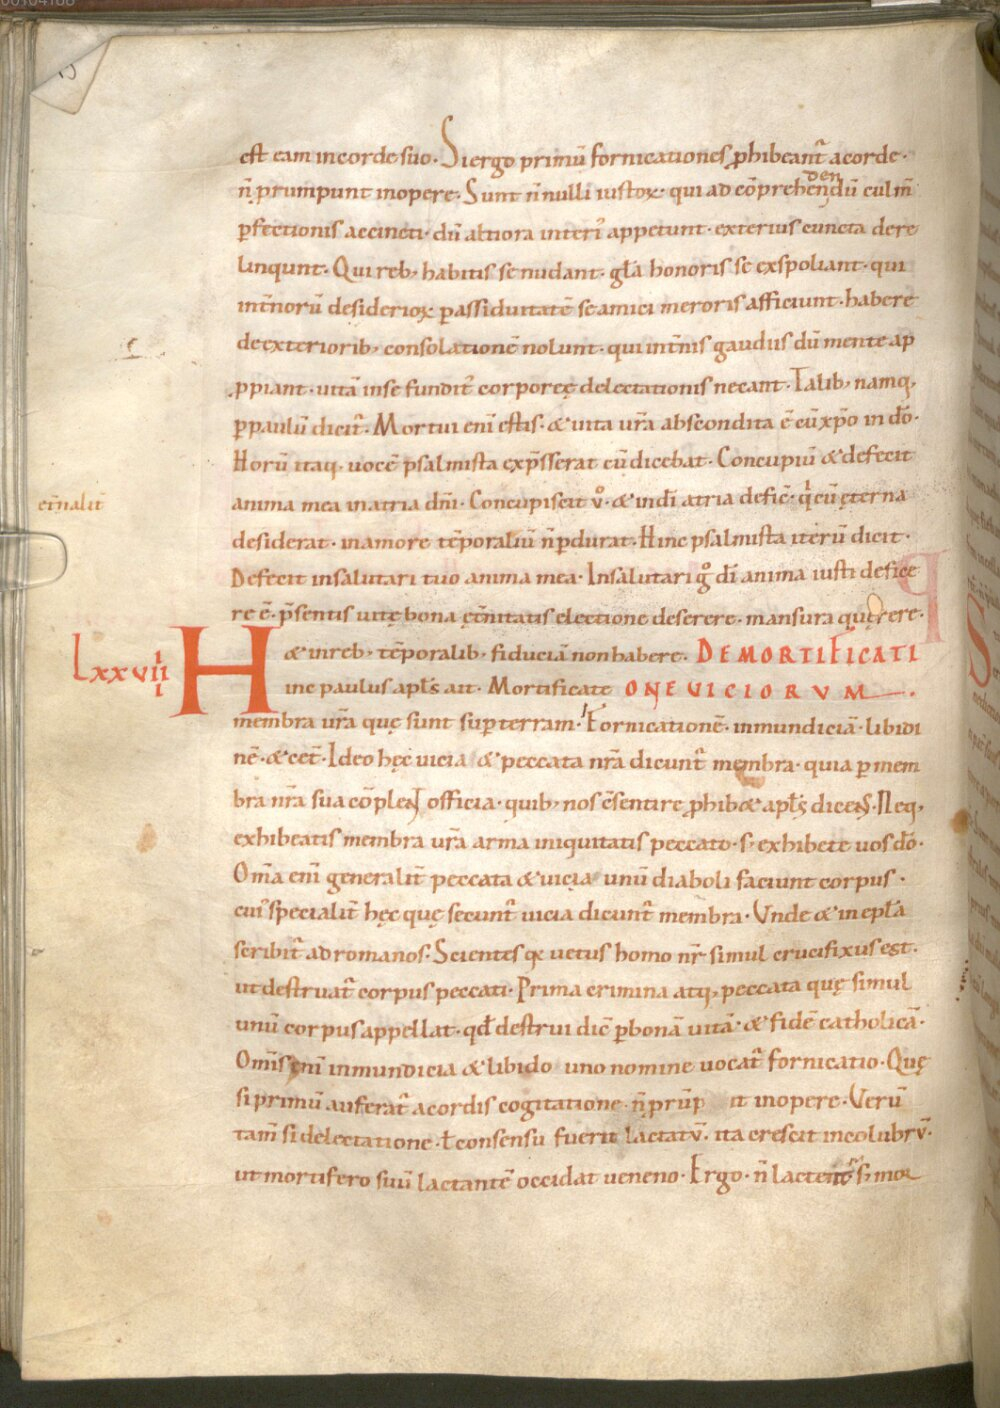 est eam in corde suo. Si ergo primū fornicationes ꝓhibeant᷑ a corde.
n̄ prumpunt in opere. Sunt n̄ nulli iustoꝝ. qui ad cōprehendendū culm̄
ꝑfectionis accincti. dū altiora interi᷒ appetunt. exterius cuncta dere
linqunt. Qui reb; habitis se nudant. gl̄a honoris se exspoliant. qui
int̄norū desiderioꝝ ꝑ assiduitatē se amici meroris afficiunt. habere
de exteriorib; consolationē nolunt. qui int̄nis gaudiis dū mente ap
ꝓpiant. uitā in se fundit᷒ corporeę delectationis necant. Talib; namq;
ꝑ paulū dicit᷑. Mortui enī estis. & uita ur̄a abscondita ē cū xp̄o in dō.
Horū itaq; vocē psalmista exp̄sserat cū dicebat. Concupiuı̄ & defecit
etn̄alit̄
anima mea in atria dn̄i. Concupiscit ů. & in dı̄ atria defic̄. q̇ cū ęterna
desiderat. in amore tēporaliū n̄ ꝑdurat. Hinc psalmista iterū dicit.
Defecit in salutari tuo anima mea. In salutari g̊ dı̄ anima iusti defice
re ē. p̄sentis uitę bona et̄nitatis electione deserere. mansura quęrere.
& in reb; tēporalib; fiduciā non habere. DE MORTIFICATI
LXXVIII Hinc paulus apl̄s ait. Mortificate ONE VICIORVM.
membra ur̄a quę sunt suꝑ terram. Fornicationē. inmundiciā. libidi
nē. & cet̄. Ideo hęc uicia & peccata nr̄a dicunt᷑ membra. quia ꝑ mem
bra nr̄a sua cōplent officia. quib; nos c̄sentire ꝓhib& apl̄s dicens. Neq;
exhibeatis membra ur̄a arma iniquitatis peccato. s; exhibete uos dō.
Om̄a enī generalit̄ peccata & uicia unū diaboli faciunt corpus.
cui᷒ specialit̄ hęc quę secunt᷑ uicia dicunt᷑ membra. Vnde & in epl̄a
scribit᷑ ad romanos. Scientes qꝫ uetus homo nr̄ simul crucifixus est.
ut destruat᷑ corpus peccati. Prima crimina atq; peccata quę simul
unū corpus appellat. qđ destrui dic̄ ꝑ bonā uitā. & fidē catholicā.
Om̄is enī inmundicia & libido uno nomine uocat᷑ fornicatio. Quę
si primū auferat᷑ a cordis cogitatione. n̄ prūp it in opere. Verū
tam̄ si delectatione. ł consensu fuerit lactatū. ita crescit in colubrū.
ut mortifero suū lactantē occidat ueneno. Ergo. n̄